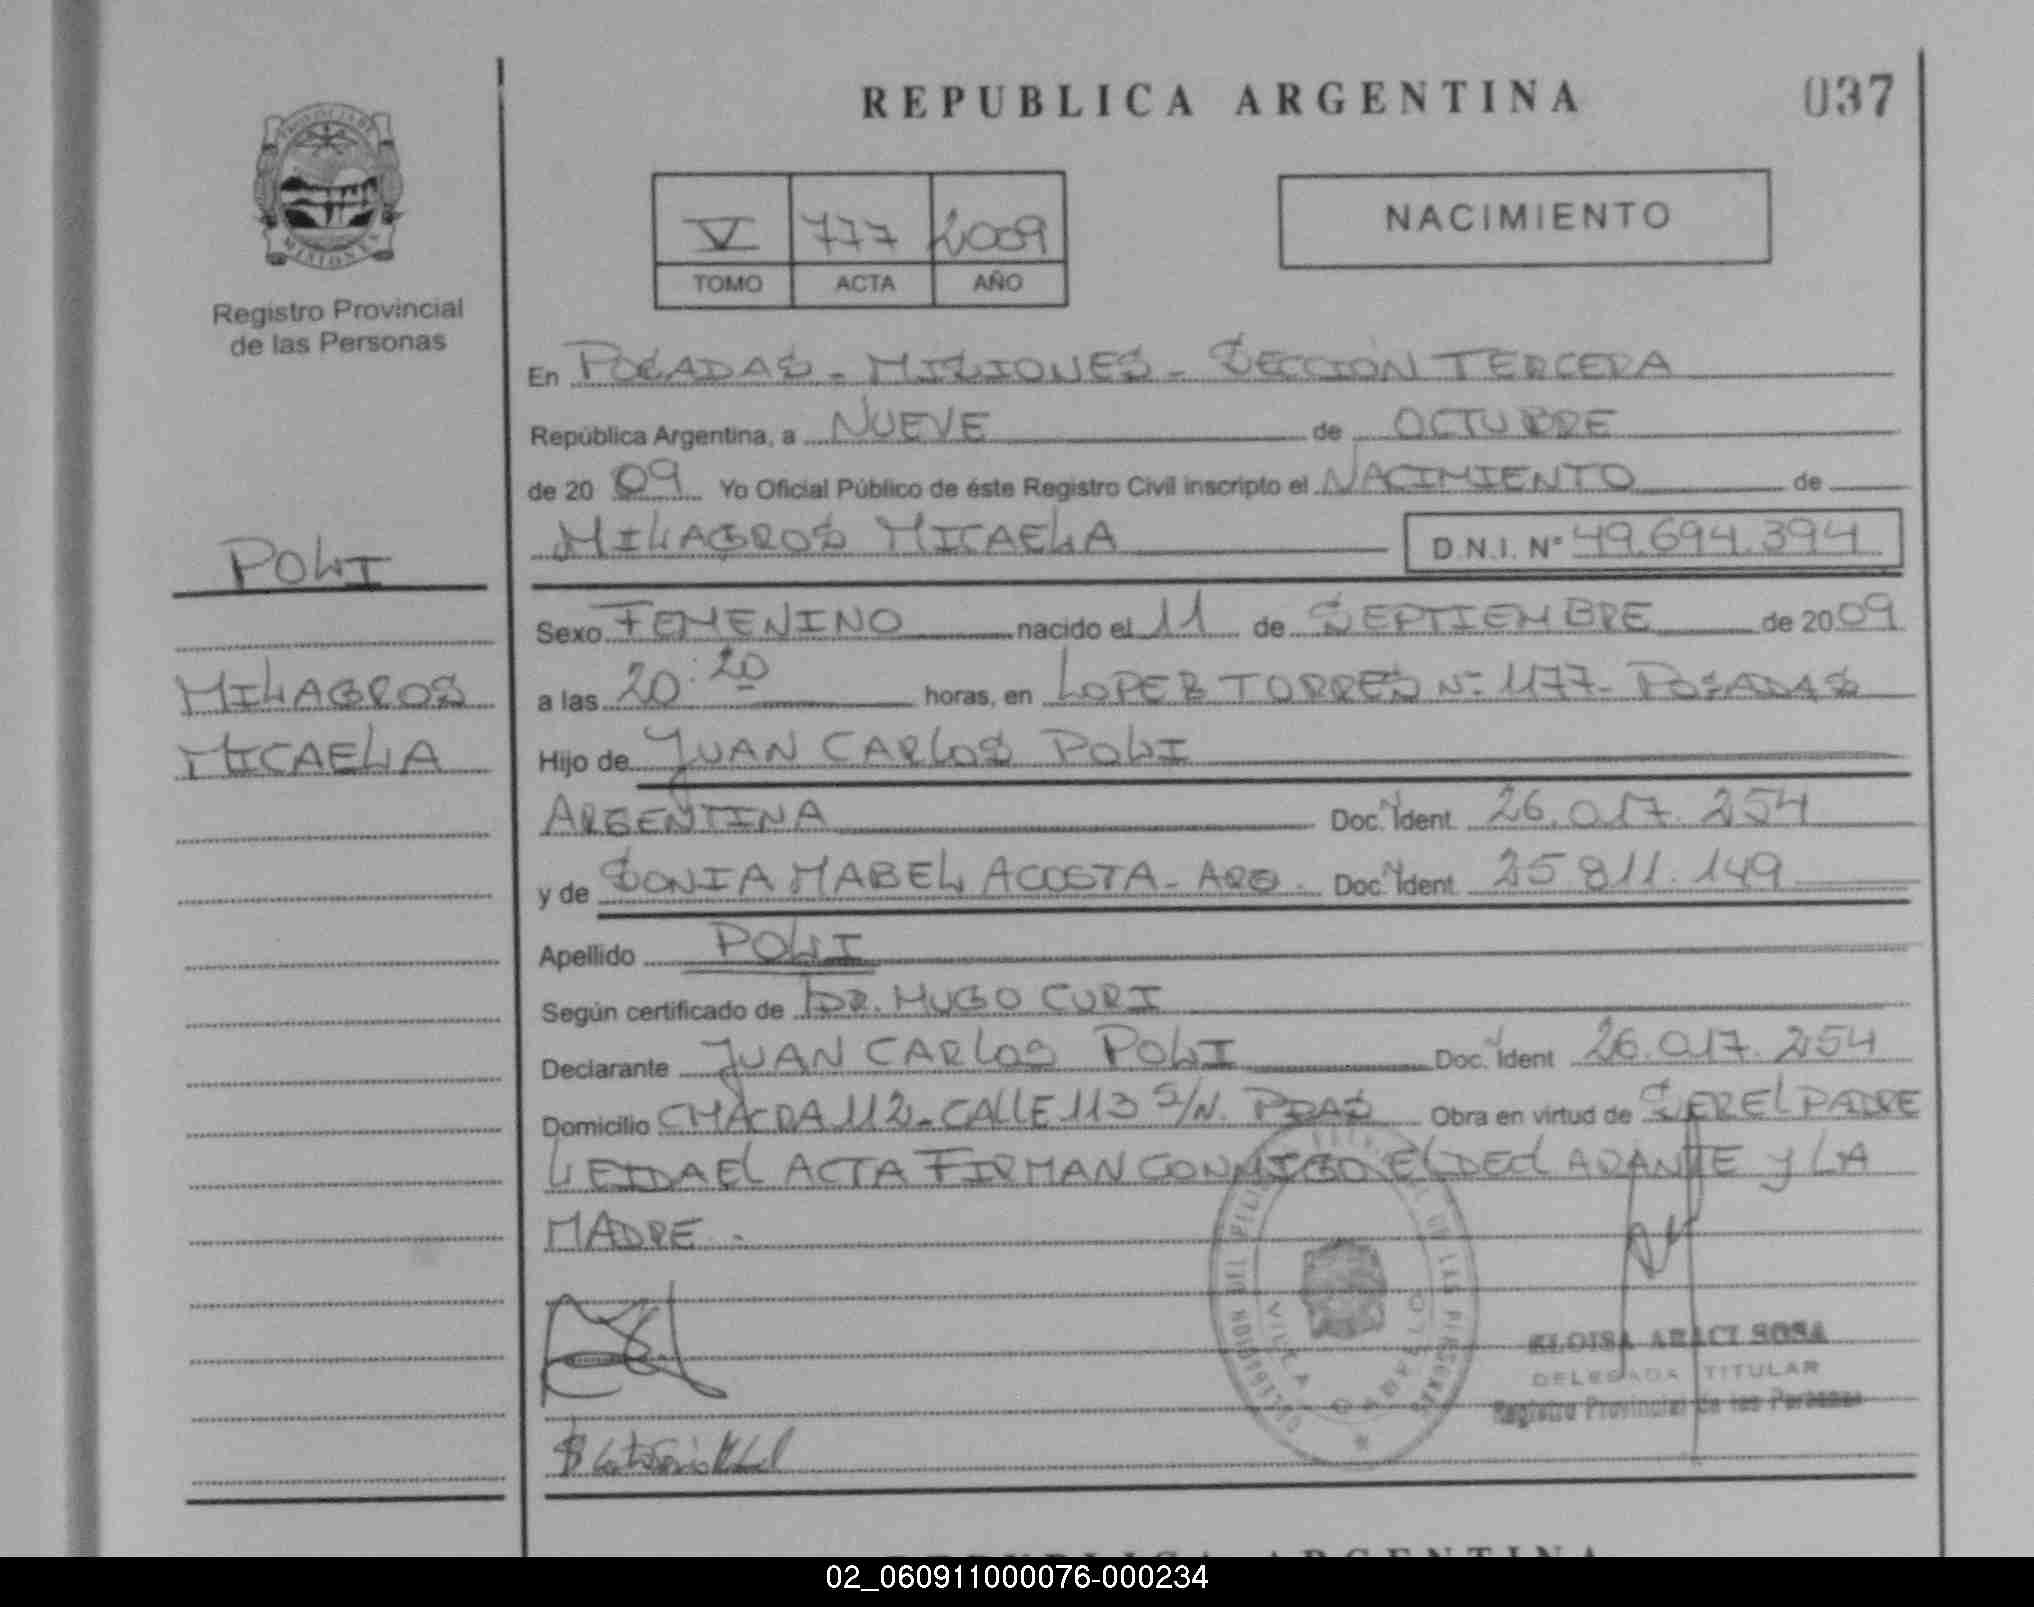 REPUBLICA ARGENTINA
037
PROVINCIA DE
MISIONES
Registro Provincial
de las Personas
V 777 2009
TOMO ACTA AÑO
NACIMIENTO
En POSADAS - MISIONES - SECCION TERCERA
República Argentina, a NUEVE de OCTUBRE
de 20 09 Yo Oficial Público de éste Registro Civil inscripto el NACIMIENTO de
MILAGROS MICAELA D.N.I. Nº 49.694.394
POLI
MILAGROS
MICAELA
Sexo FEMENINO nacido el 11 de SEPTIEMBRE de 20 09
a las 20:20 horas, en LOPEZ TORRES Nº 1177 - POSADAS
Hijo de JUAN CARLOS POLI
ARGENTINA Doc. Ident. 26.017.254
y de SONIA MABEL ACOSTA - ARG. Doc. Ident. 25.811.149
Apellido POLI
Según certificado de DR. HUGO CURI
Declarante JUAN CARLOS POLI Doc. Ident 26.017.254
Domicilio CHACRA 112 - CALLE 113 S/N. PDAS Obra en virtud de SER EL PADRE
LEIDA EL ACTA FIRMAN CONMIGO EL DECLARANTE y LA
MADRE.-
DE LAS PERSONAS
VILLA CABELLO
ELOISA ARACI SOSA
DELEGADA TITULAR
Registro Provincial de las Personas
REPUBLICA ARGENTINA
02_060911000076-000234